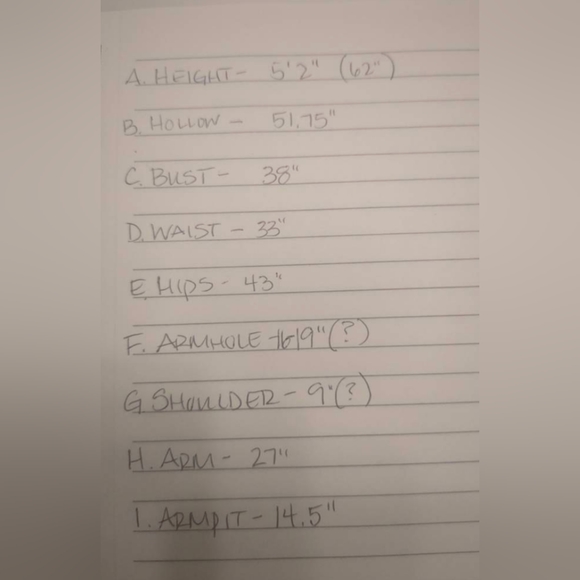 A. HEIGHT - 5'2" (62")
B. HOLLOW - 51.75"
C. BUST - 38"
D. WAIST - 33"
E. HIPS - 43"
F. ARMHOLE - 16-19" (?)
G. SHOULDER - 9" (?)
H. ARM - 27"
I. ARMPIT - 14.5"